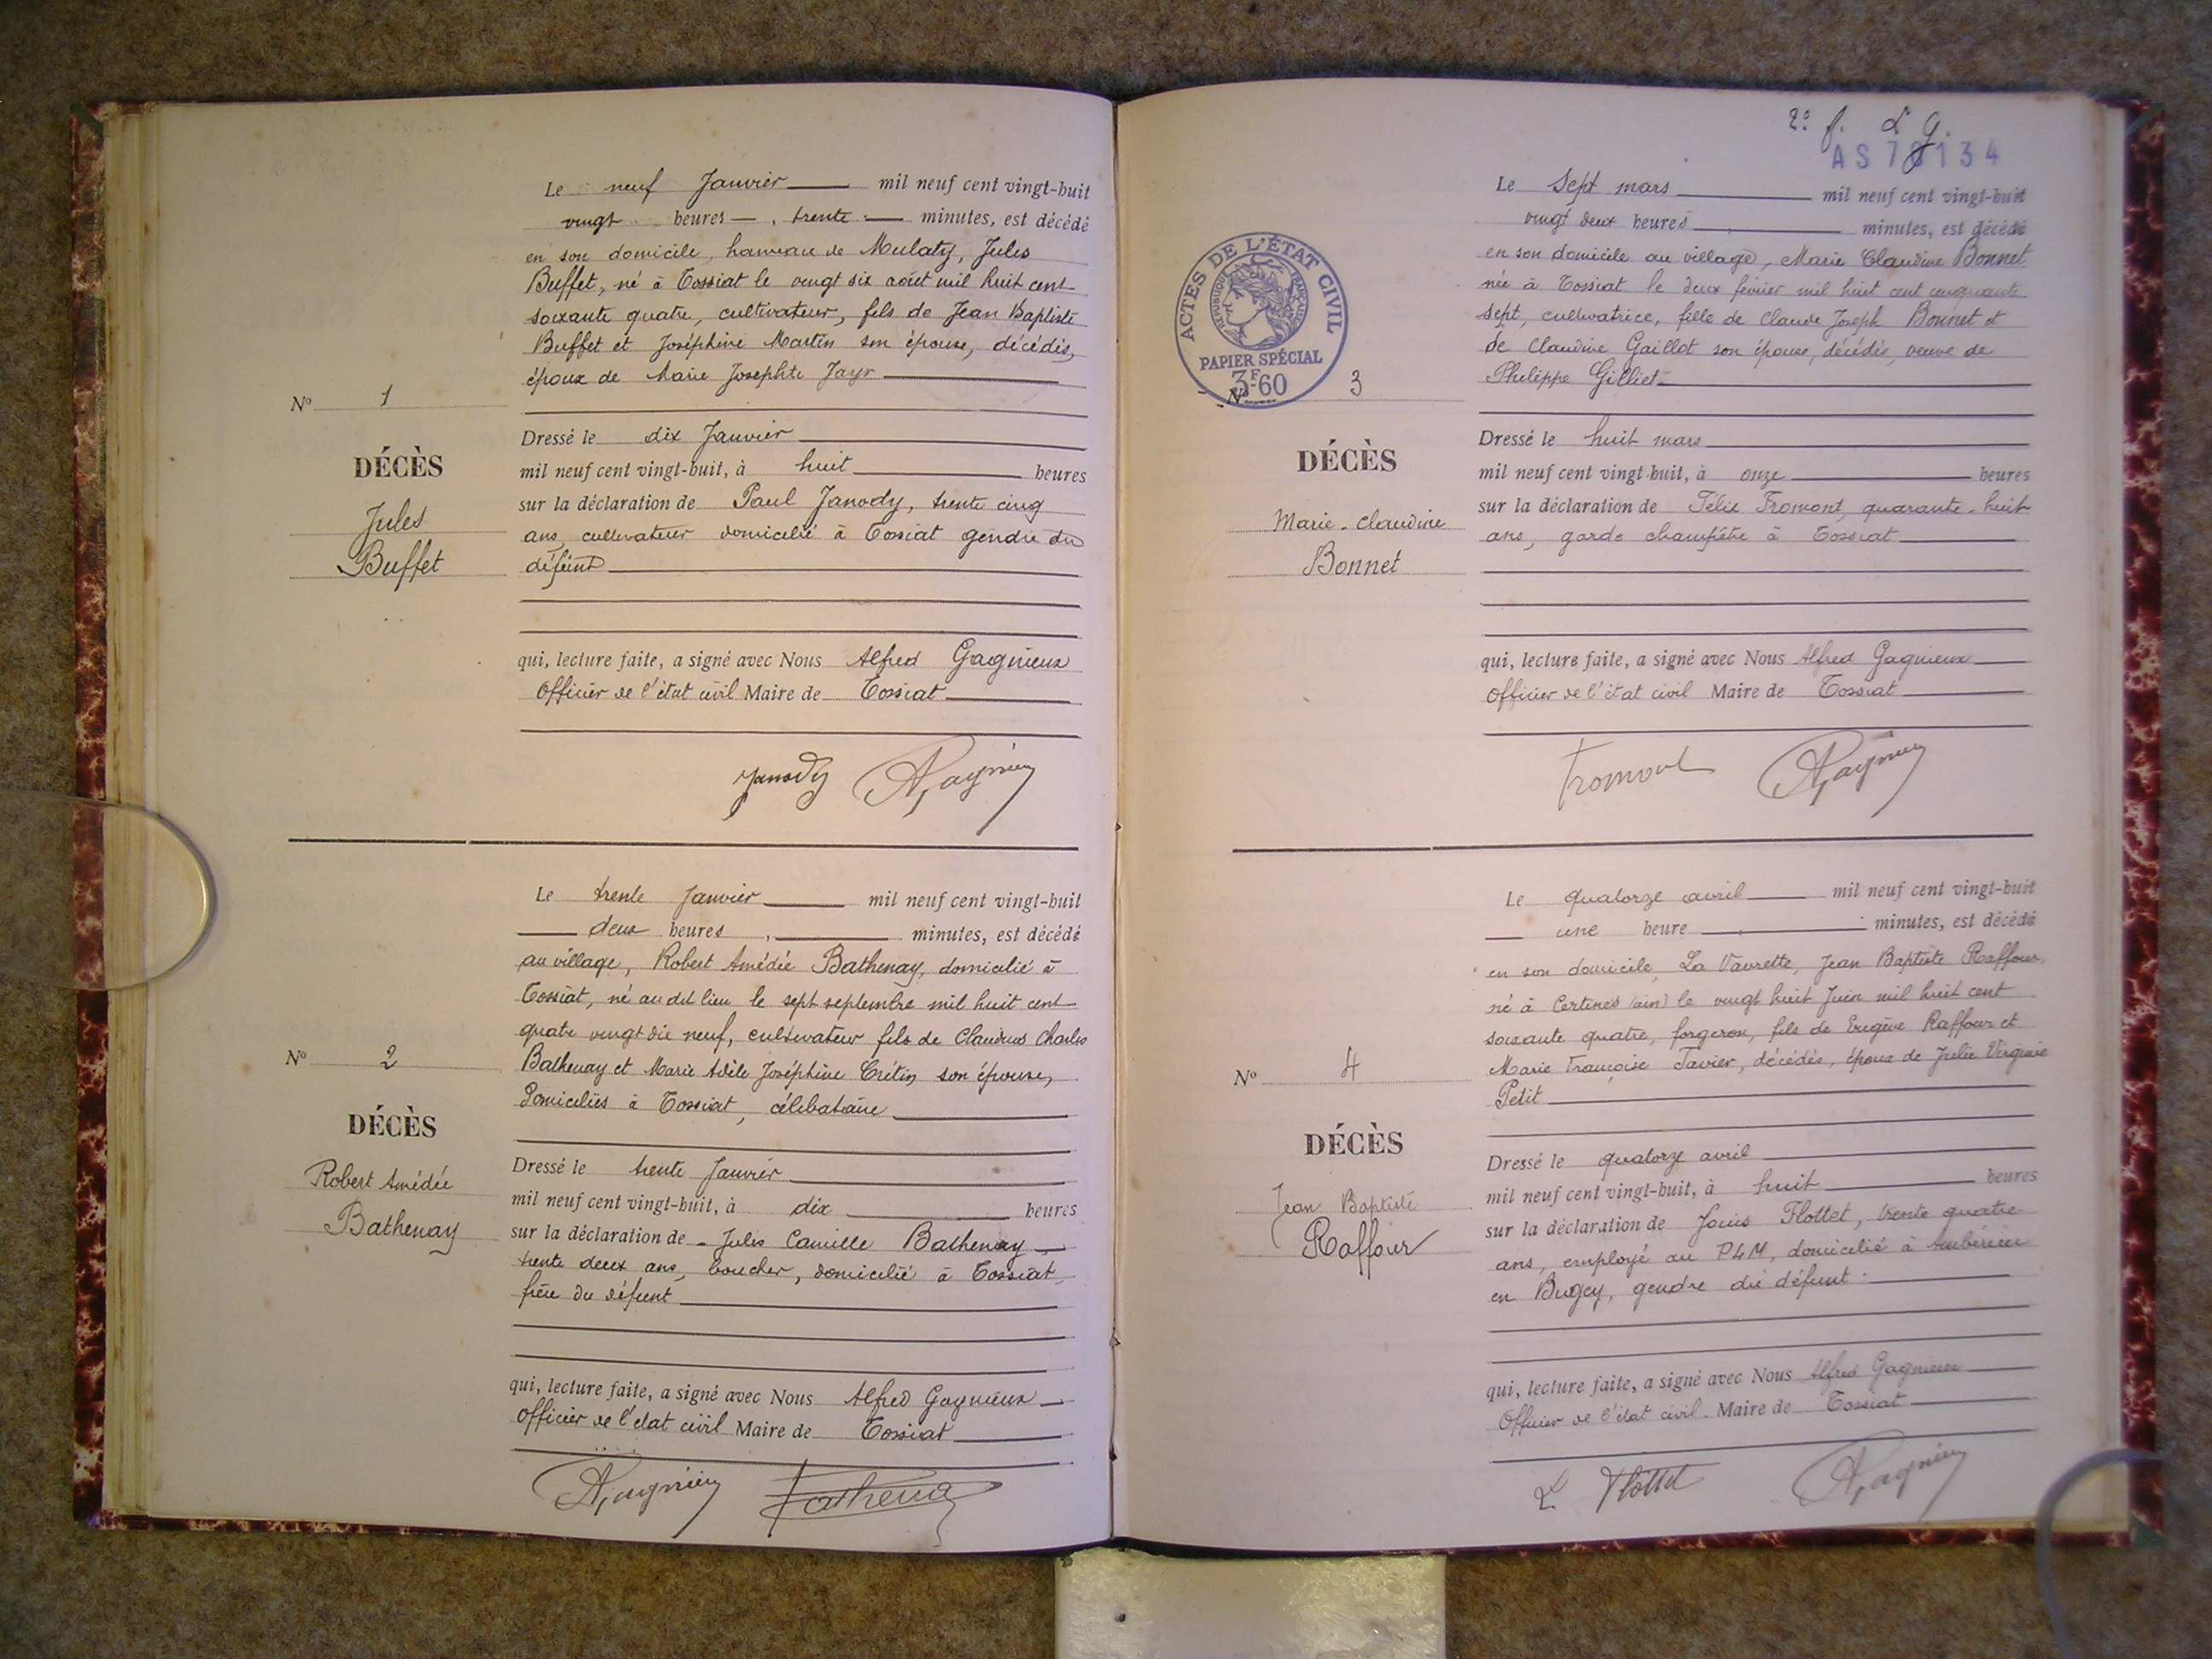 Le neuf Janvier mil neuf cent vingt-huit
vingt heures, trente minutes, est décédé
en son domicile, hameau de Mulaty, Jules
Buffet, né à Tossiat le vingt six août mil huit cent
soixante quatre, cultivateur, fils de Jean Baptiste
Buffet et Joséphine Martin son épouse, décédés,
époux de Marie Josephte Jayr
No 1
Dressé le dix Janvier
DÉCÈS
mil neuf cent vingt-huit, à huit heures
sur la déclaration de Paul Janody, trente cinq
Jules
ans, cultivateur domicilié à Tossiat gendre du
Buffet
défunt
qui, lecture faite, a signé avec Nous Alfred Gagnieux
Officier de l'état civil Maire de Tossiat
Janody
Le trente Janvier mil neuf cent vingt-huit
deux heures, minutes, est décédé
au village, Robert Amédée Bathenay, domicilié à
Tossiat, né au dit lieu le sept septembre mil huit cent
quatre vingt dix neuf, cultivateur fils de Claudius Charles
No 2
Bathenay et Marie Adèle Joséphine Crétin son épouse,
domiciliés à Tossiat, célibataire
DÉCÈS
Dressé le trente Janvier
Robert Amédée
mil neuf cent vingt-huit, à dix heures
Bathenay
sur la déclaration de Jules Camille Bathenay
trente deux ans, boucher, domicilié à Tossiat,
frère du défunt
qui, lecture faite, a signé avec Nous Alfred Gagnieux
Officier de l'état civil Maire de Tossiat
2e f. d g.
AS78134
Le sept mars mil neuf cent vingt-huit
vingt deux heures, minutes, est décédé
en son domicile au village, Marie Claudine Bonnet
née à Tossiat le deux février mil huit cent cinquante
sept, cultivatrice, fille de Claude Joseph Bonnet et
de Claudine Gaillot son épouse, décédés, veuve de
Philippe Gilliet
ACTES DE L'ÉTAT CIVIL
RÉPUBLIQUE FRANÇAISE
PAPIER SPÉCIAL
3F60
No 3
Dressé le huit mars
DÉCÈS
mil neuf cent vingt-huit, à onze heures
sur la déclaration de Félix Fromont, quarante-huit
Marie-Claudine
ans, garde champêtre à Tossiat
Bonnet
qui, lecture faite, a signé avec Nous Alfred Gagnieux
Officier de l'état civil Maire de Tossiat
Fromont
Le quatorze avril mil neuf cent vingt-huit
une heure, minutes, est décédé
en son domicile, La Vavrette, Jean Baptiste Raffour,
né à Certines (ain) le vingt huit Juin mil huit cent
soixante quatre, forgeron, fils de Eugène Raffour et
No 4
Marie Françoise Tavier, décédés, époux de Julie Virginie
Petit
DÉCÈS
Dressé le quatorze avril
mil neuf cent vingt-huit, à huit heures
Jean Baptiste
sur la déclaration de Louis Flottet, trente quatre
Raffour
ans, employé au PLM, domicilié à Ambérieu
en Bugey, gendre du défunt
qui, lecture faite, a signé avec Nous Alfred Gagnieux
Officier de l'état civil Maire de Tossiat
L Flottet